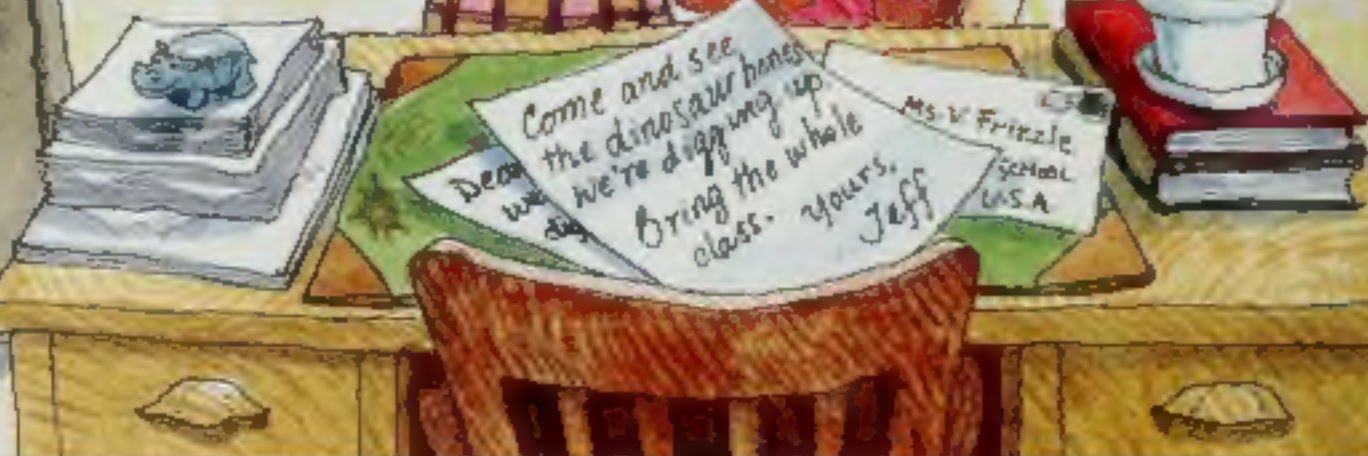 Come and see
the dinosaur bones
we're digging up
Bring the whole
class. Yours,
Jeff
Dear
we
dig
Ms V Frizzle
SCHOOL
U.S.A